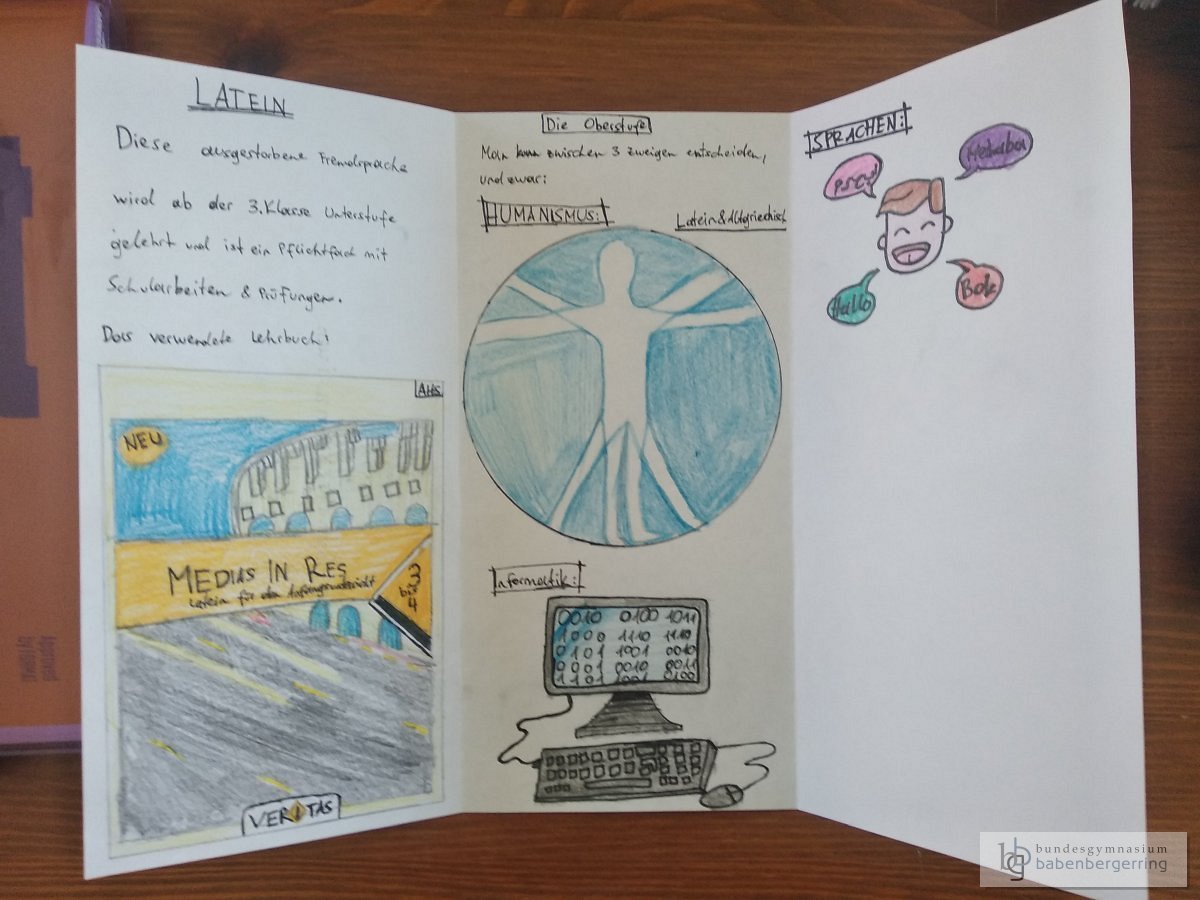 LATEIN
Diese ausgestorbene Fremdsprache
wird ab der 3.Klasse Unterstufe
gelehrt und ist ein Pflichtfach mit
Schularbeiten & Prüfungen.
Das verwendete Lehrbuch:
AHS
NEU
MEDIAS IN RES
Latein für den Anfangsunterricht
3
bis
4
VERITAS
Die Oberstufe
Man kann zwischen 3 zweigen entscheiden,
und zwar:
HUMANISMUS:
Latein & Altgriechisch
Informatik:
0010 0100 1011
1000 1110 1110
0101 1001 0010
0001 0010 0011
1101 1001 0100
SPRACHEN:
Merhaba
Hallo
Bok
bg
bundesgymnasium
babenbergerring